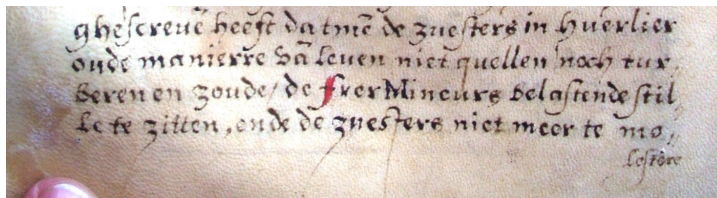 ghescreuē heeft datmē de zuesters in huerlier
oude manierre vā leven niet quellen noch tur„
beren en zoude / de frer Mineurs belastende stil„
le te zitten, ende de zuesters niet meer te mo„
lestere